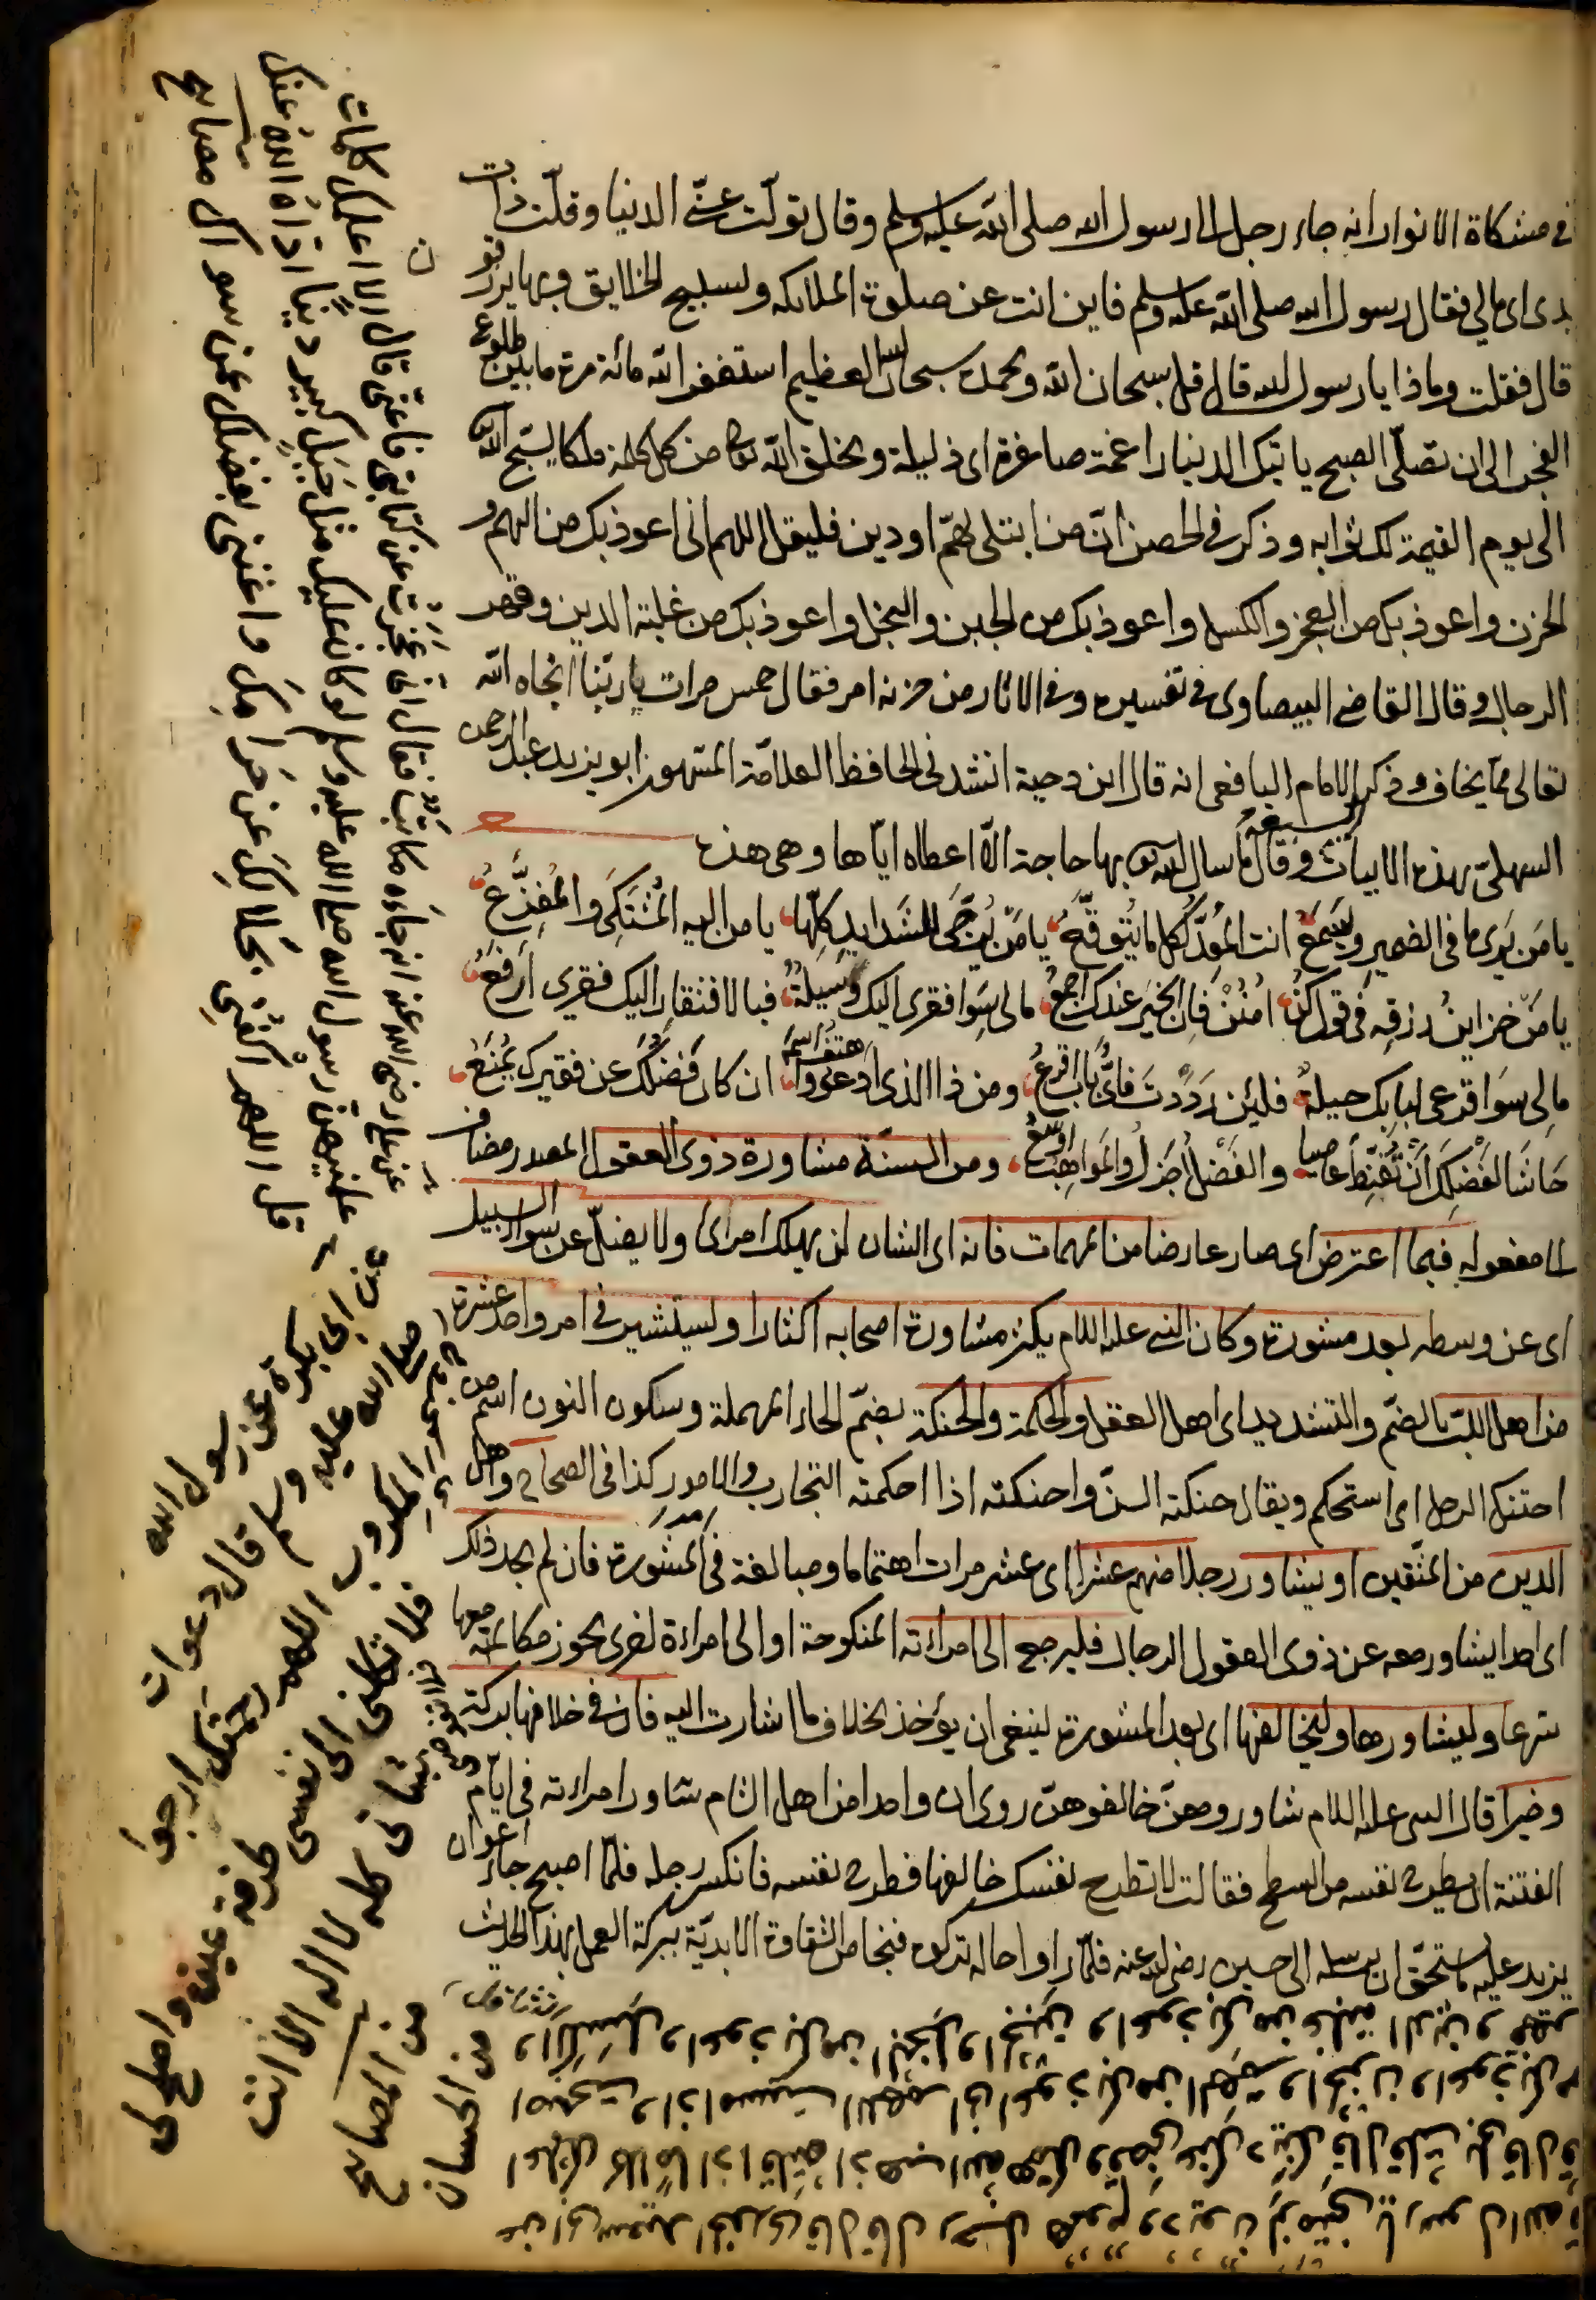 في مشكاة الانوار انه جاء رجل الى رسول الله صلى الله عليه وسلم وقال تولّت عنّي الدنيا وقلّت ذات
يدى اى مالي فقال رسول الله صلى الله عليه وسلم فاين انت عن صلوة الملائكه وتسبيح الخلايق وبها يرزقو
ن
قال فقلت وماذا يا رسول الله قال قل سبحان الله وبحمده سبحان الله العظيم استغفر الله مائة مرة ما بين طلوع
الفجر الى ان تصلّى الصبح ياتيك الدنيا راغمة صاغرة اى ذليلة ويخلق الله تعالى من كل كلمة ملكا يسبّح الله
الى يوم القيمة لك ثوابه وذكر في الحصن انّ من ابتلى بهمّ او دين فليقل اللهم انى اعوذ بك من الهم و
الحزن واعوذ بك من العجز والكسل واعوذ بك من الجبن والبخل واعوذ بك من غلبة الدين وقهر
الرجال وقال القاضى البيضاوى في تفسيره وفي الاثار من حزنه امر فقال خمس مرات يا ربّنا انجاه الله
تعالى ممّا يخاف وذكر الامام اليافعى انه قال ابن دحية انشدنى الحافظ العلامّة المشهور ابو يزيد عبد الرحمن
السهلىّ بهذه الابيات السبعة وقال ما سال الله تعالى بها حاجة الاّ اعطاه ايّاها وهى هذه
يا مَن يَرى ما فى الضميرِ ويَسمَعُ انت المُعِدُّ لكل ما يُتوقّعُ يا مَن يُرَجَّى للشدايد كلِّها يا من اليه المُشتكَى والمُفزَعُ
يا مَن خزاينُ رزقِه في قول كُن امنُنْ فان الخيرَ عندك اجمعُ مالى سِوا فقرى اليك وسيلةٌ فبالافتقار اليك فقرى ارفعُ
مالِى سوَا قرعى لبابك حيلةٌ فلئِن رَدَدتَ فاىَّ بابٍ اقرعُ ومن ذا الذى ادعو واهتف باسمه ان كان فضلُك عن فقيرك يُمنَعُ
حَاشَا لفضلِكَ أنْ تُقنِّطَ عاصيا والفضلُ اجزلُ والمواهبُ اوسعُ ومن السنّة مشاورة ذوى العقول المصدر مضاف
الى مفعوله فيما اعترض اى صار عارضا من المهمات فانه اى الشان لن يهلك امرؤ ولا يضلّ عن سواء السبيل
اى عن وسطه بعد مشورة وكان النبى عليه السلام يكثر مشاورة اصحابه اكثارا ويستشير في امر واحد عشرة
من اهل اللبّ بالضمّ والتشديد اى اهل العقل والحكمة والحنكة بضمّ الحاء المهملة وسكون النون اسم من
احتنك الرجل اى استحكم ويقال حنكته السنّ واحنكته اذا احكمته التجارب والامور كذا فى الصحاح واهل
الدين من المتّقين او يشاور رجلا منهم عشرا اى عشر مرات اهتماما ومبالغة في المشورة فان لم يجد ذلك
اى احدا يشاور معه عن ذوى العقول الرجال فليرجع الى امراءته المنكوحة او الى امراءة اخرى يجوز مكالمته معها
شرعا وليشاورها وليخالفها اى بعد المشورة لينبغى ان يؤخذ بخلاف ما اشارت اليه فان في خلافها بركة
وخيرا قال النبى عليه السلام شاوروهنّ خالفوهنّ روى ان واحدا من اهل الشام شاور امراءته فى ايّام
الفتنة ان يطرح نفسه من السطح فقالت لا تطرح نفسك خالفها فطرح نفسه فانكسر رجله فلمّا اصبح جاء اعوان
يزيد عليه ما يستحقّ ان يرسله الى حسين رضى الله عنه فلمّا راوا حاله تركوه فنجا من الشقاوة الابديّة ببركة العمل بهذا الحديث
عن على رضى الله عنه انه جاءه مكاتَبٌ فقال انى عَجَزت عن كتابتى فاعنّى قال الا اعلمك كلمات
علّمنيهنّ رسول الله صلى الله عليه وسلم لو كان عليك مثل جَبلٍ كبير دينًا ادّاهُ الله عنك
قل اللهم اكفنِى بحَلالِكَ عن حرامِكَ واغننى بفضلك عمن سواك مصابيح
عن ابى بكرة عن رسول الله
صلى الله عليه وسلم قال دعوات
المكروب اللهم رحمتك ارجو
فلا تكلنى الى نفسى طرفة عين واصلح لى
شانى كله لا اله الا انت
من المصابيح
من الحسان
عن ابى سعيد الخدرى قال قال رجل هموم وديون لزمتنى يا رسول الله
قال قلت بلى قال
اعلمك كلاما اذا قلته اذهب الله همك وقضى عنك دينك
اصبحت واذا امسيت اللهم انى اعوذ بك من الهم والحزن واعوذ بك
والكسل واعوذ بك من البخل والجبن واعوذ بك من غلبة الدين وقهر